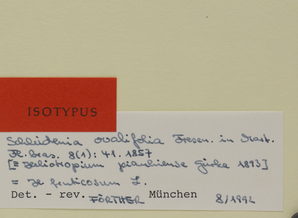 ISOTYPUS
Schleidenia ovalifolia Fresen. in Mart.
Fl. bras. 8(1): 41. 1857
[≡ Heliotropium piauhiense Gürke 1893]
= H. fruticosum L.
Det. - rev. FÖRTHER München 8/1994